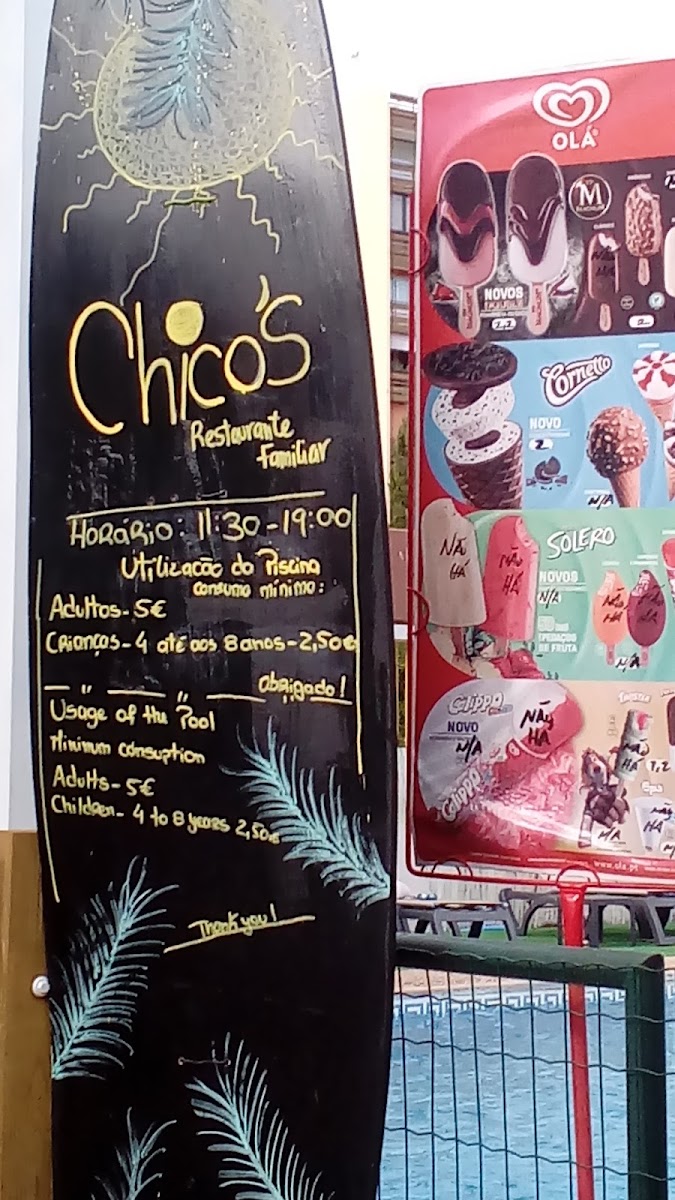 Chico's
Restaurante
Familiar
HORÁRIO: 11:30-19:00
Utilização do Piscina
consumo mínimo:
Adultos-5€
Crianças-4 até aos 8 anos-2,50€
Obrigado!
Usage of the Pool
Minimum consuption
Adults-5€
Children-4 to 8 years 2,50€
Thank you!
OLÁ
M
NOVOS
DOUBLE
Cornetto
NOVO
N/A
SOLERO
NÃO
HÁ
NÃO
HÁ
NOVOS
N/A
PEDAÇOS
DE FRUTA
NÃO
HÁ
NÃO
HÁ
N/A
Calippo
NOVO
N/A
NÃO
HÁ
Calippo
TWISTER
NÃO
HÁ
N/A
NÃO
HÁ
www.ola.pt